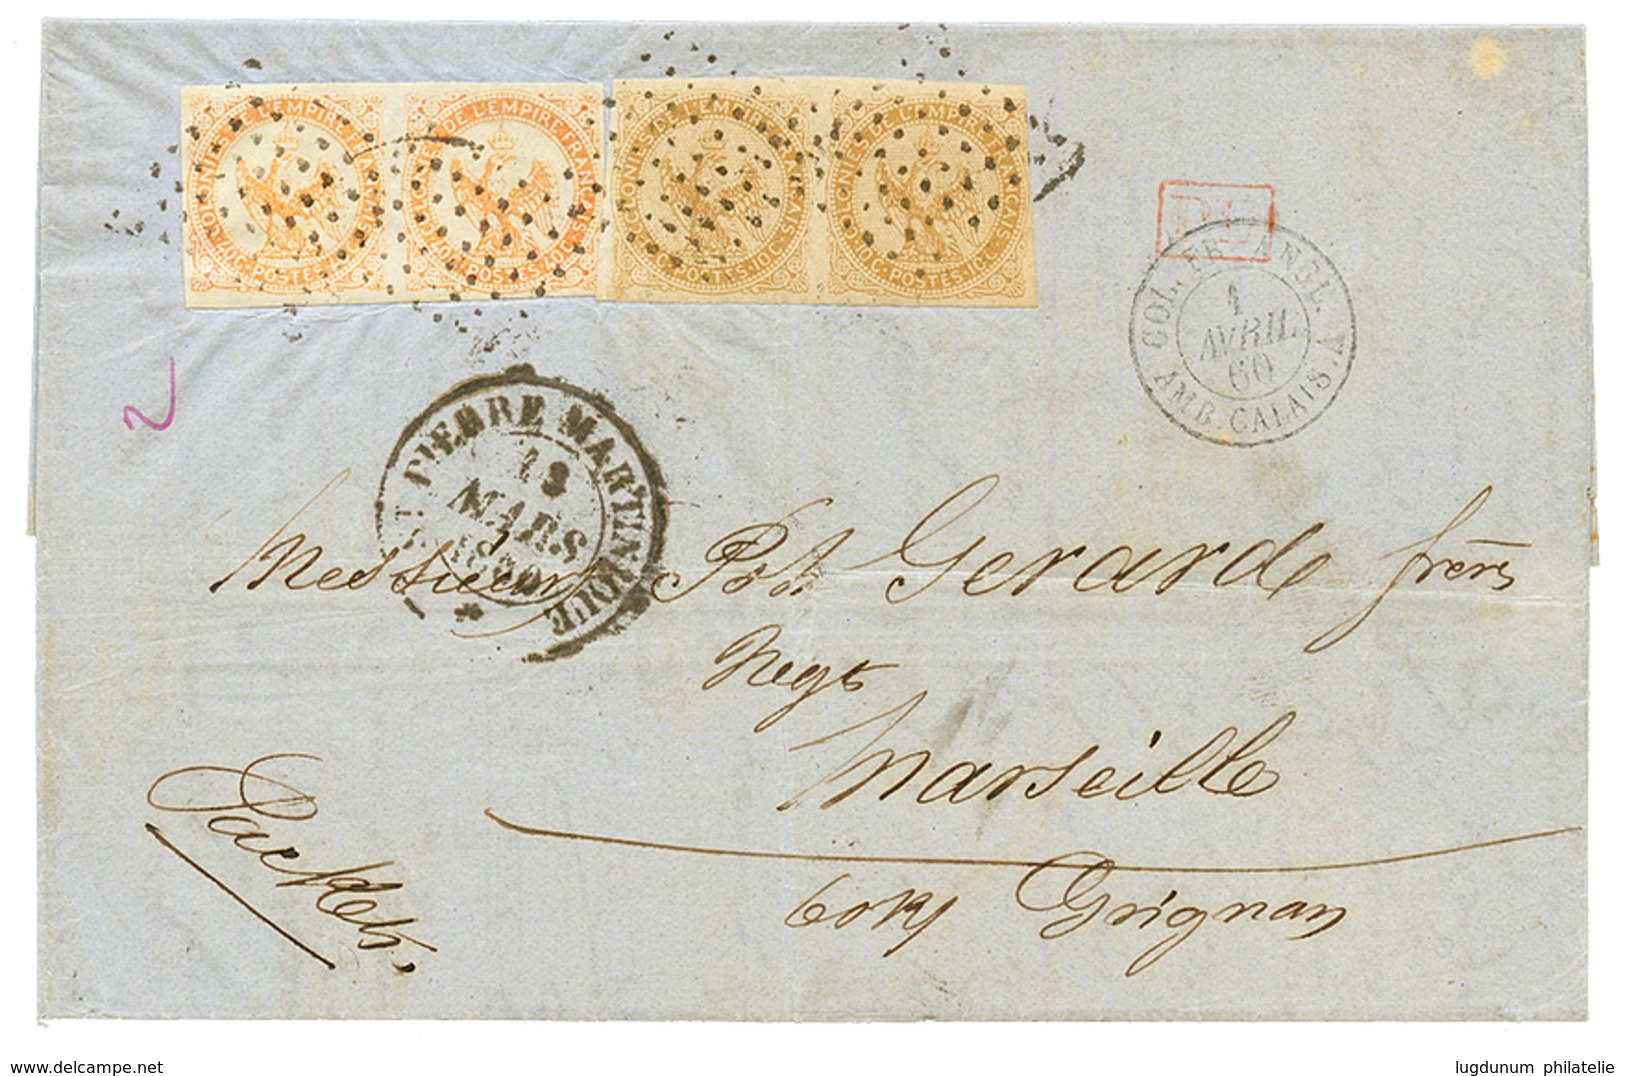 COLONIES DE L'EMPIRE FRANÇAIS
40 C. POSTES 40 C.
COLONIES DE L'EMPIRE FRANÇAIS
40 C. POSTES 40 C.
COLONIES DE L'EMPIRE FRANÇAIS
10 C. POSTES 10 C.
COLONIES DE L'EMPIRE FRANÇAIS
10 C. POSTES 10 C.
COL. FR. ANGL. V.
1
AVRIL
60
AMB. CALAIS. A
2
ST PIERRE MARTINIQUE
MARS
1860
Messieurs Gerard frères
Negts
Marseille
Grignan
Packet
www.delcampe.net
lugdunum philatelie